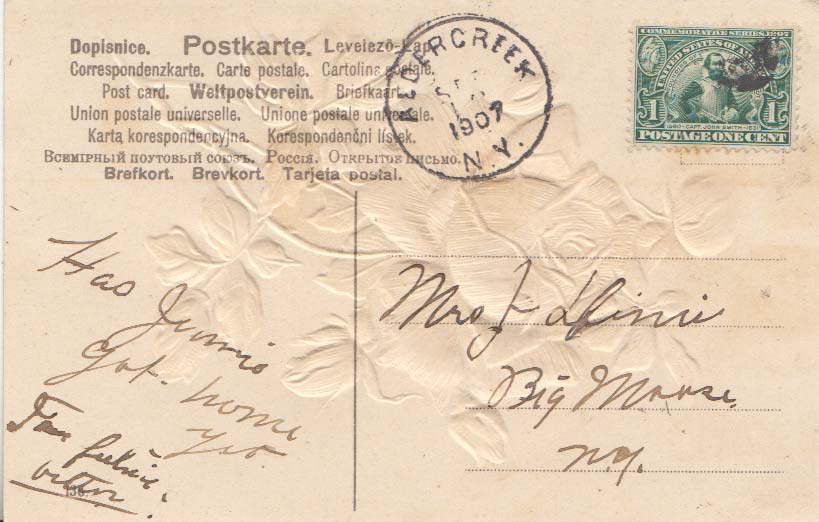 Dopisnice. Postkarte. Levelező-Lap
Correspondenzkarte. Carte postale. Cartolina postale.
Post card. Weltpostverein. Briefkaart
Union postale universelle. Unione postale universale.
Kartą korespondencyjna. Korespondenční lístek.
Всемірный почтовый союзъ. Россія. Открытое письмо.
Brefkort. Brevkort. Tarjeta postal.
ALDERCREEK
1907
N.Y.
COMMEMORATIVE SERIES 1907
UNITED STATES OF AMERICA
1 1
1580-CAPT. JOHN SMITH-1631
POSTAGE ONE CENT
Has
got home
yet
136.
Mrs J
Big Moose
N.Y.